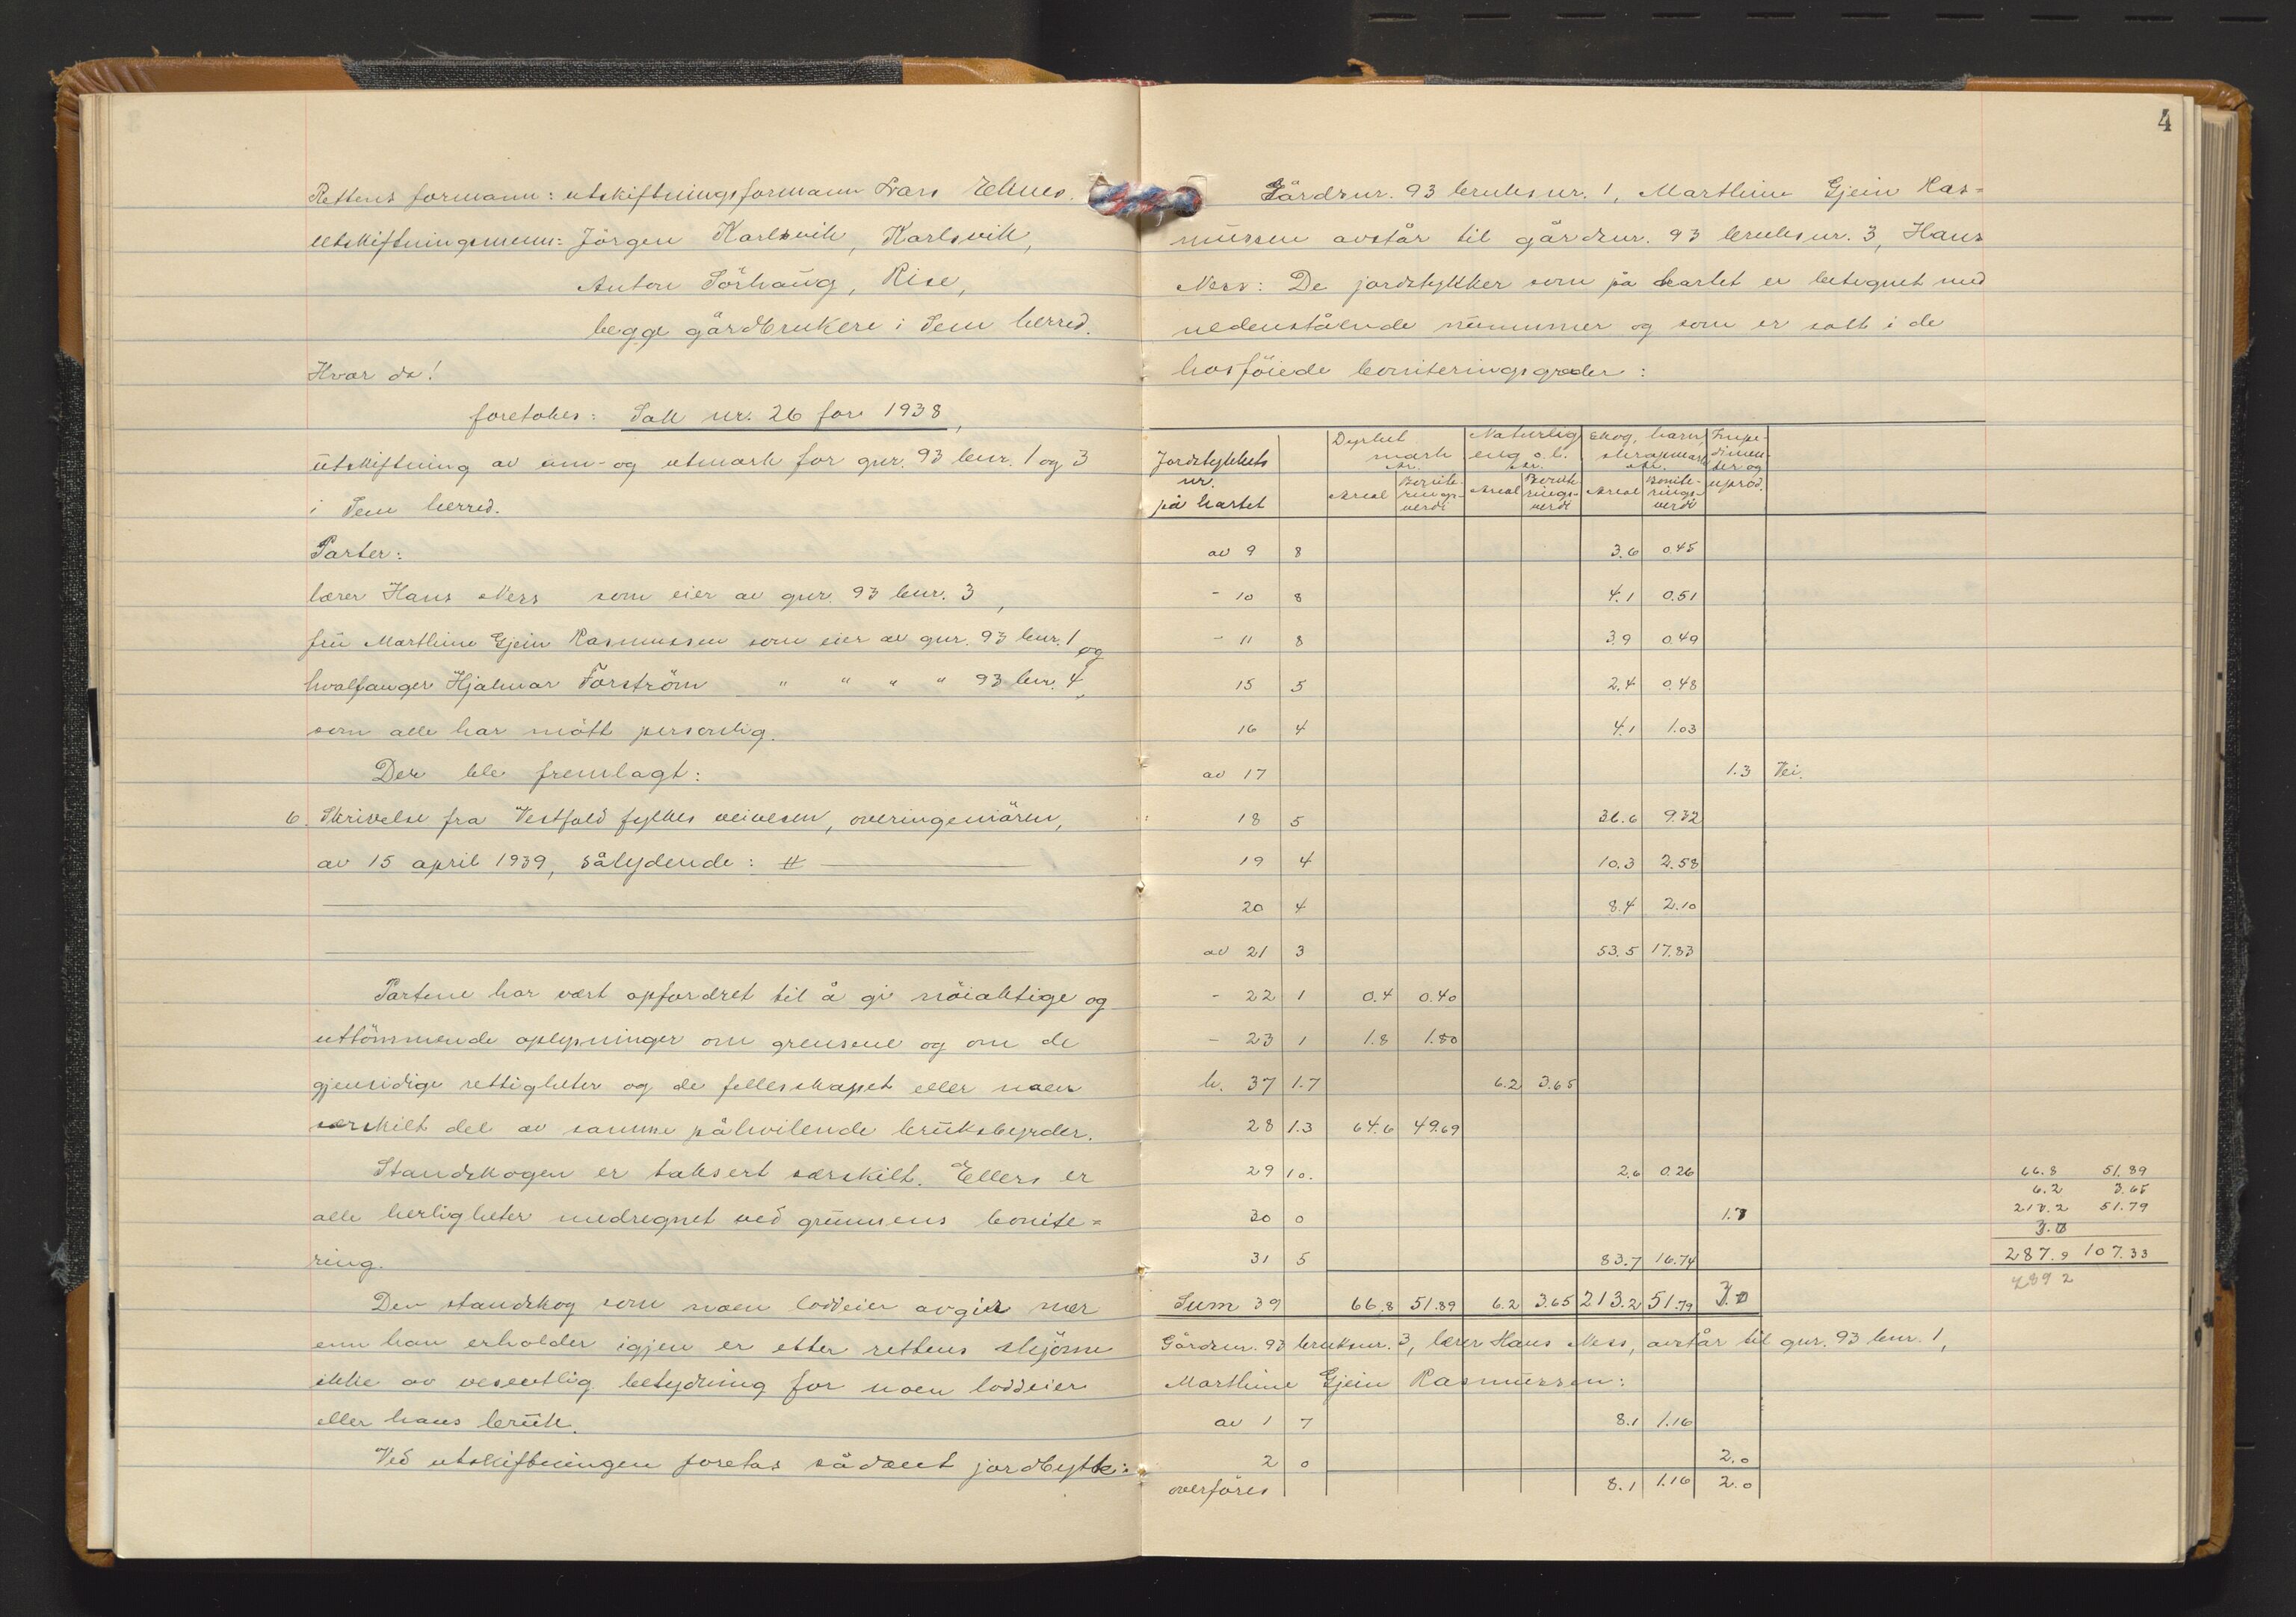 Rettens formann: utskiftningsformann Lars
utskiftningsmenn: Jörgen Karlsvik, Karlsvik,
Anton Sörhaug, Rise,
begge gårdbrukere i Sem herred.
Hvor da!
foretokes: Sak nr. 26 for 1938,
utskiftning av inn- og utmark for gnr. 93 bnr. 1 og 3
i Sem herred.
Parter:
lærer Hans Ness som eier av gnr. 93 bnr. 3,
fru Marthine Gjein Rasmussen som eier av gnr. 93 bnr. 1 og
hvalfanger Hjalmar Forström " " " " 93 bnr. 4,
som alle har mött personlig.
Der ble fremlagt:
6. Skrivelse fra Vestfold fylkes veivesen, overingeniören,
av 15 april 1939, sålydende: #
Partene har vært opfordret til å gi nöiaktige og
uttömmende oplysninger om grensene og om de
gjensidige rettigheter og de fellesskapet eller noen
særskilt del av samme påhvilende bruksbyrder.
Standskogen er taksert særskilt. Ellers er
alle herligheter medregnet ved grunnens bonite=
ring.
Den standskog som noen loddeier avgir mer
enn han erholder igjen er etter rettens skjönn
ikke av vesentlig betydning for noen loddeier
eller hans bruk.
Ved utskiftningen foretas sådant jordbytte:
4
Gårdsnr. 93 bruksnr. 1, Marthine Gjein Ras=
mussen avstår til gårdsnr. 93 bruksnr. 3, Hans
Ness: De jordstykker som på kartet er betegnet med
nedenstående nummer og som er satt i de
hosföiede boniteringsgrader:
Jordstykkets nr. på kartet | | Dyrket mark Ar. Areal | Boniteringsverdi | Naturlig eng o.l. Ar. Areal | Boniteringsverdi | Skog, havn, skrapmark Ar. Areal | Boniteringsverdi | Impedimenter og uprod.
av 9 8 3.6 0.45
- 10 8 4.1 0.51
- 11 8 3.9 0.49
15 5 2.4 0.48
16 4 4.1 1.03
av 17 1.3 Vei.
18 5 36.6 9.32
19 4 10.3 2.58
20 4 8.4 2.10
av 21 3 53.5 17.83
- 22 1 0.4 0.40
- 23 1 1.8 1.80
h. 37 1.7 6.2 3.65
28 1.3 64.6 49.69
29 10. 2.6 0.26
30 0 1.7
31 5 83.7 16.74
Sum 39 66.8 51.89 6.2 3.65 213.2 51.79 3.0
66.8 51.89
6.2 3.65
213.2 51.79
3.0
287.9 107.33
2892
Gårdsnr. 93 bruksnr. 3, lærer Hans Ness, avstår til gnr. 93 bnr. 1,
Marthine Gjein Rasmussen:
av 1 7 8.1 1.16
2 0 2.0
overföres 8.1 1.16 2.0